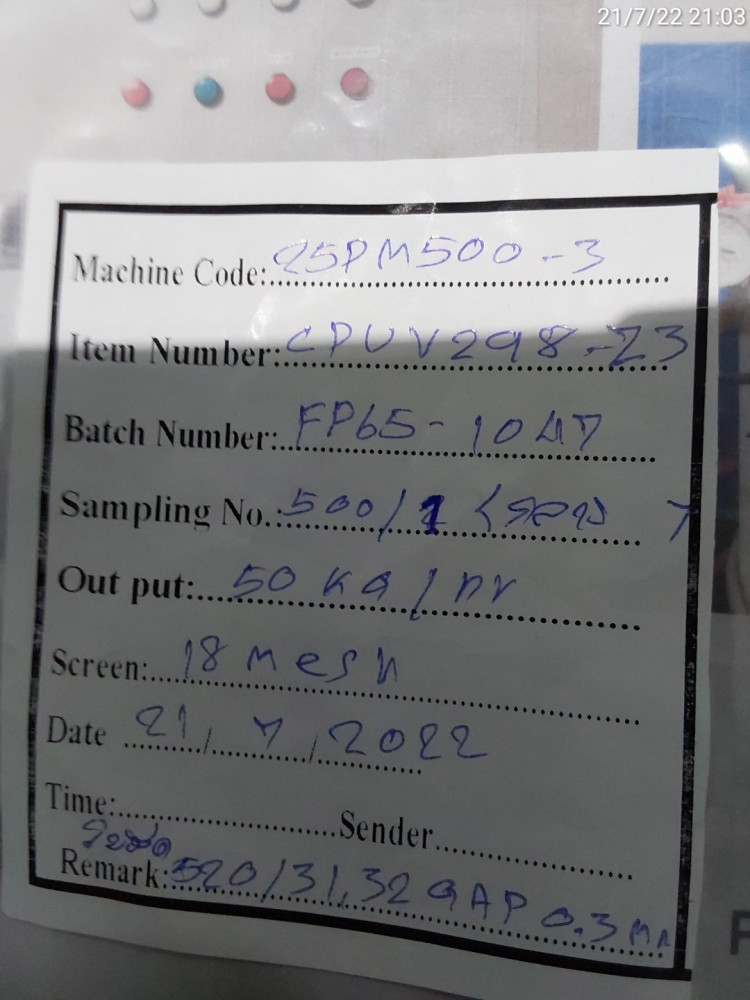 21/7/22 21:03
Machine Code: 25PM500-3
Item Number: CPUV298-Z3
Batch Number: FP65-1047
Sampling No.: 500/1 (
Out put: 50 kg/hr
Screen: 18 mesh
Date 21/7/2022
Time: Sender
Remark: 520/31,32 GAP 0.3